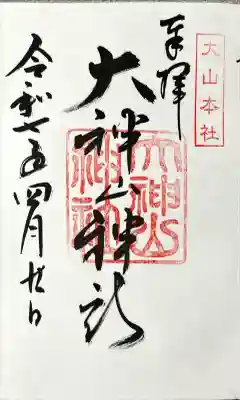 大山本社
奉拝
大神山神社
大神山神社
令和七年四月廿日